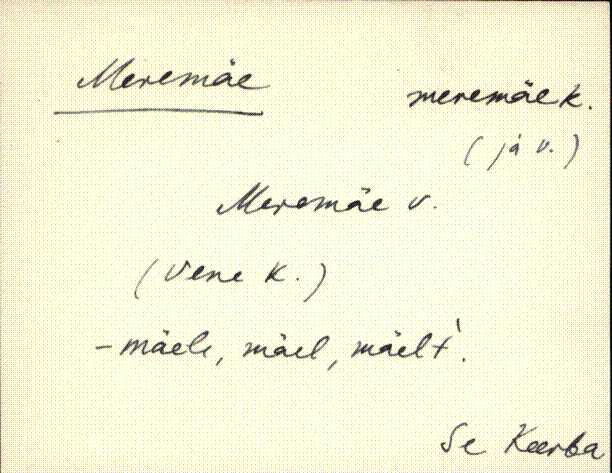 Meremäe
meremäe k.
(ja v.)
Meremäe v.
(vene k.)
-mäele, mäel, mäelt'.
Se Keerba